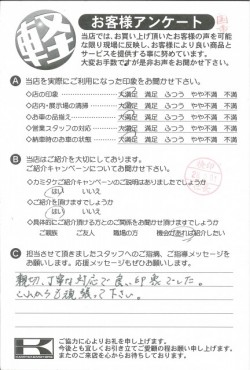 軽
お客様アンケート
当店では、お買い上げ頂いたお客様の声を可能
な限り現場に反映し、お客様により良い商品と
サービスを提供する事に努めています。
大変お手数ですが是非お声をお聞かせ下さい。
A 当店を実際にご利用になった印象をお聞かせ下さい。
◇店の印象 大満足 満足 ふつう やや不満 不満
◇店内・展示場の清掃 大満足 満足 ふつう やや不満 不満
◇お車の品揃え 大満足 満足 ふつう やや不満 不満
◇営業スタッフの対応 大満足 満足 ふつう やや不満 不満
◇納車時のお車の状態 大満足 満足 ふつう やや不満 不満
B 当店はご紹介を大切にしております。
ご紹介キャンペーンについてお聞かせ下さい。
◇カミタケご紹介キャンペーンのご説明はありましたでしょうか
はい いいえ
◇ご紹介を頂けますでしょうか
はい いいえ
◇具体的にご紹介頂ける方とのご関係をお聞かせ頂けますでしょうか
ご親族 ご友人 職場の方 機会があれば紹介したい
C 担当させて頂きましたスタッフへのご指摘、ご指導メッセージを
お願いします。応援メッセージもぜひお願いします。
親切、丁寧な対応で良い印象でした。
これからも頑張って下さい。
K
ご協力に心よりお礼を申し上げます。
今後とも宜しくお引立てご愛顧の程お願い申し上げます。
またのご来店を心からお待ちしております。